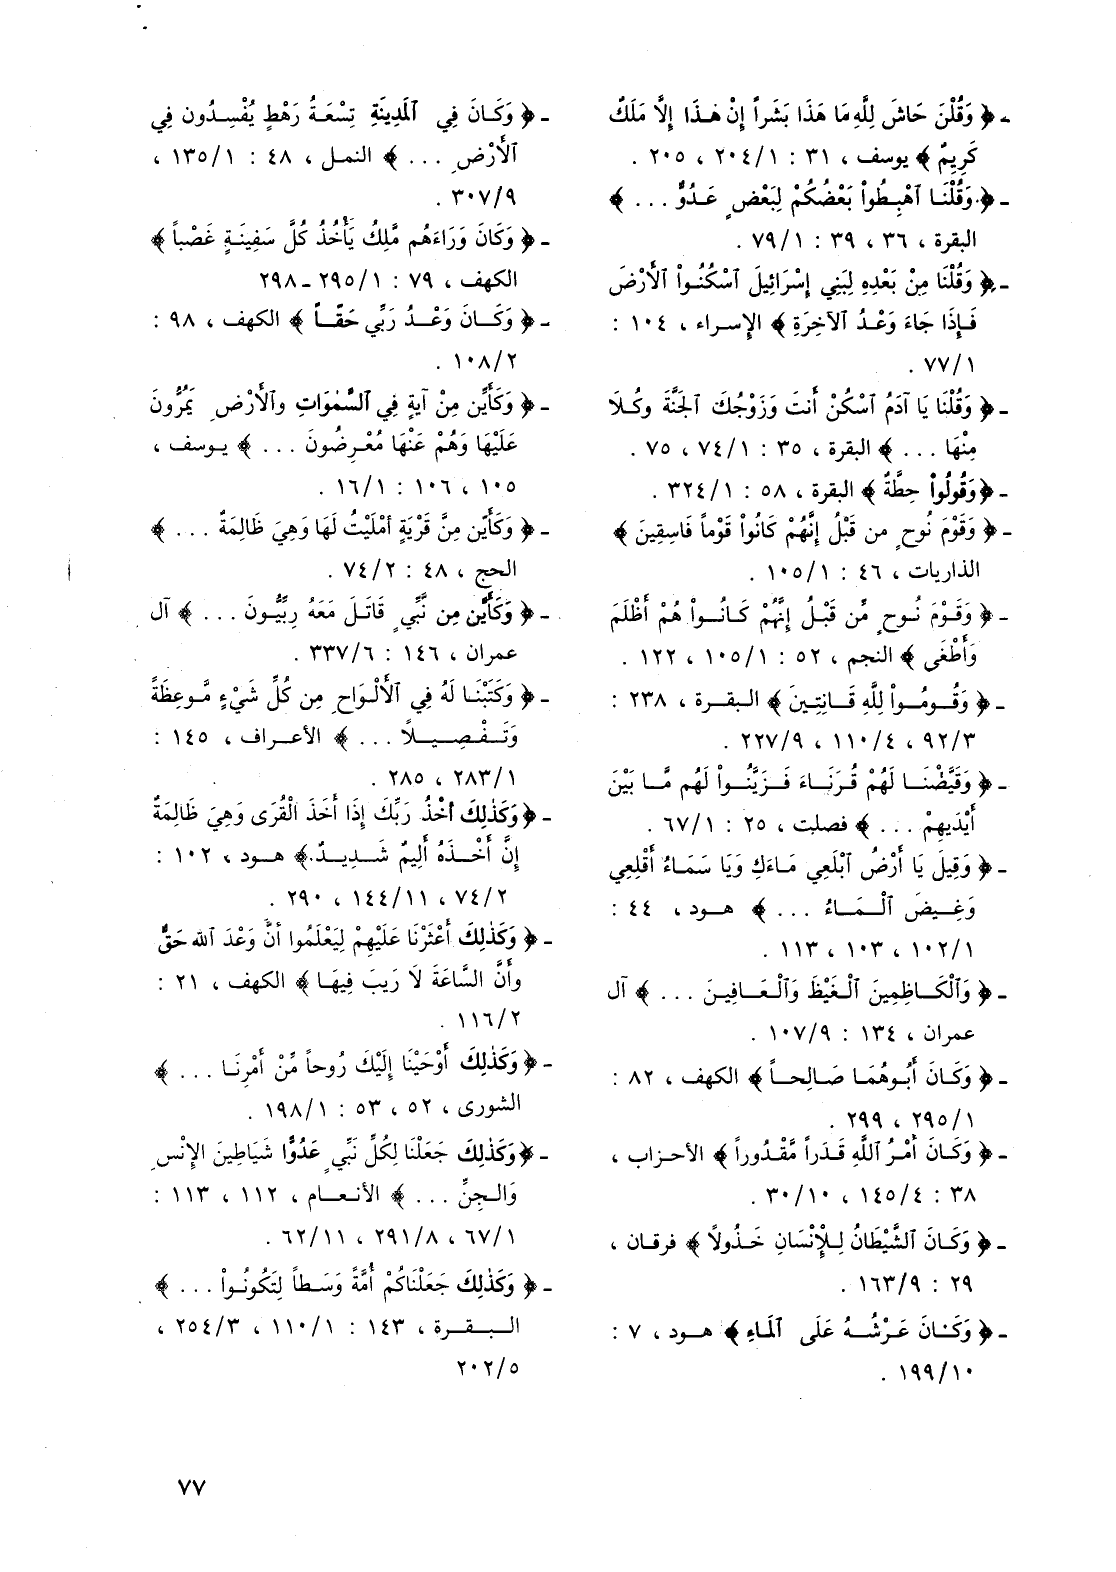 - ﴿ وَقُلْنَ حَاشَ لِلَّهِ مَا هَذَا بَشَراً إِنْ هٰذَا إِلَّا مَلَكٌ
كَرِيمٌ ﴾ يوسف ، ٣١ : ٢٠٤/١ ، ٢٠٥ .
- ﴿ وَقُلْنَا ٱهْبِطُواْ بَعْضُكُمْ لِبَعْضٍ عَدُوٌّ ... ﴾
البقرة ، ٣٦ ، ٣٩ : ٧٩/١ .
- ﴿ وَقُلْنَا مِنْ بَعْدِهِ لِبَنِي إِسْرَائِيلَ ٱسْكُنُواْ ٱلأَرْضَ
فَإِذَا جَاءَ وَعْدُ ٱلآخِرَةِ ﴾ الإسراء ، ١٠٤ :
٧٧/١ .
- ﴿ وَقُلْنَا يَا آدَمُ ٱسْكُنْ أَنتَ وَزَوْجُكَ ٱلجَنَّةَ وكُلَا
مِنْهَا ... ﴾ البقرة ، ٣٥ : ٧٤/١ ، ٧٥ .
- ﴿ وَقُولُواْ حِطَّةٌ ﴾ البقرة ، ٥٨ : ٣٢٤/١ .
- ﴿ وَقَوْمَ نُوحٍ من قَبْلُ إِنَّهُمْ كَانُواْ قَوْماً فَاسِقِينَ ﴾
الذاريات ، ٤٦ : ١٠٥/١ .
- ﴿ وَقَوْمَ نُوحٍ مِّن قَبْلُ إِنَّهُمْ كَانُواْ هُمْ أَظْلَمَ
وَأَطْغَى ﴾ النجم ، ٥٢ : ١٠٥/١ ، ١٢٢ .
- ﴿ وَقُومُواْ لِلَّهِ قَانِتِينَ ﴾ البقرة ، ٢٣٨ :
٩٢/٣ ، ١١٠/٤ ، ٢٢٧/٩ .
- ﴿ وَقَيَّضْنَا لَهُمْ قُرَنَاءَ فَزَيَّنُواْ لَهُم مَّا بَيْنَ
أَيْدِيهِمْ ... ﴾ فصلت ، ٢٥ : ٦٧/١ .
- ﴿ وَقِيلَ يَا أَرْضُ ٱبْلَعِي مَاءَكِ وَيَا سَمَاءُ أَقْلِعِي
وَغِيضَ ٱلْمَاءُ ... ﴾ هود ، ٤٤ :
١٠٢/١ ، ١٠٣ ، ١١٣ .
- ﴿ وَٱلْكَاظِمِينَ ٱلْغَيْظَ وَٱلْعَافِينَ ... ﴾ آل
عمران ، ١٣٤ : ١٠٧/٩ .
- ﴿ وَكَانَ أَبُوهُمَا صَالِحاً ﴾ الكهف ، ٨٢ :
٢٩٥/١ ، ٢٩٩ .
- ﴿ وَكَانَ أَمْرُ ٱللَّهِ قَدَراً مَّقْدُوراً ﴾ الأحزاب ،
٣٨ : ١٤٥/٤ ، ٣٠/١٠ .
- ﴿ وَكَانَ ٱلشَّيْطَانُ لِلْإِنْسَانِ خَذُولاً ﴾ فرقان ،
٢٩ : ١٦٣/٩ .
- ﴿ وَكَانَ عَرْشُهُ عَلَى ٱلمَاءِ ﴾ هود ، ٧ :
١٩٩/١٠ .
- ﴿ وَكَانَ فِي ٱلمَدِينَةِ تِسْعَةُ رَهْطٍ يُفْسِدُون فِي
ٱلأَرْضِ ... ﴾ النمل ، ٤٨ : ١٣٥/١ ،
٣٠٧/٩ .
- ﴿ وَكَانَ وَرَاءَهُم مَّلِكٌ يَأْخُذُ كُلَّ سَفِينَةٍ غَصْباً ﴾
الكهف ، ٧٩ : ٢٩٥/١ ـ ٢٩٨
- ﴿ وَكَانَ وَعْدُ رَبِّي حَقّاً ﴾ الكهف ، ٩٨ :
١٠٨/٢ .
- ﴿ وَكَأَيِّن مِنْ آيَةٍ فِي ٱلسَّمٰوَاتِ وٱلأَرْضِ يَمُرُّونَ
عَلَيْهَا وَهُمْ عَنْهَا مُعْرِضُونَ ... ﴾ يوسف ،
١٠٥ ، ١٠٦ : ١٦/١ .
- ﴿ وَكَأَيِّن مِنَّ قَرْيَةٍ أمْلَيْتُ لَهَا وَهِيَ ظَالِمَةٌ ... ﴾
الحج ، ٤٨ : ٧٤/٢ .
- ﴿ وَكَأَيِّن مِن نَّبِيٍّ قَاتَلَ مَعَهُ رِبِّيُّونَ ... ﴾ آل
عمران ، ١٤٦ : ٣٣٧/٦ .
- ﴿ وَكَتَبْنَا لَهُ فِي ٱلأَلْوَاحِ مِن كُلِّ شَيْءٍ مَّوعِظَةً
وَتَفْصِيلاً ... ﴾ الأعراف ، ١٤٥ :
٢٨٣/١ ، ٢٨٥ .
- ﴿ وَكَذٰلِكَ أخْذُ رَبِّكَ إِذَا أَخَذَ الْقُرَى وَهِيَ ظَالِمَةٌ
إِنَّ أَخْذَهُ أَلِيمٌ شَدِيدٌ ﴾ هود ، ١٠٢ :
٧٤/٢ ، ١٤٤/١١ ، ٢٩٠ .
- ﴿ وَكَذٰلِكَ أَعْثَرْنَا عَلَيْهِمْ لِيَعْلَمُوا أَنَّ وَعْدَ الله حَقٌّ
وأَنَّ السَّاعَةَ لَا رَيبَ فِيهَا ﴾ الكهف ، ٢١ :
١١٦/٢ .
- ﴿ وَكَذٰلِكَ أَوْحَيْنَا إِلَيْكَ رُوحاً مِّنْ أَمْرِنَا ... ﴾
الشورى ، ٥٢ ، ٥٣ : ١٩٨/١ .
- ﴿ وَكَذٰلِكَ جَعَلْنَا لِكُلِّ نَبِّيٍ عَدُوًّا شَيَاطِينَ الإِنْسِ
وَالجِنِّ ... ﴾ الأنعام ، ١١٢ ، ١١٣ :
٦٧/١ ، ٢٩١/٨ ، ٦٢/١١ .
- ﴿ وَكَذٰلِكَ جَعَلْنَاكُمْ أُمَّةً وَسَطاً لِتَكُونُواْ ... ﴾
البقرة ، ١٤٣ : ١١٠/١ ، ٢٥٤/٣ ،
٢٠٢/٥
٧٧